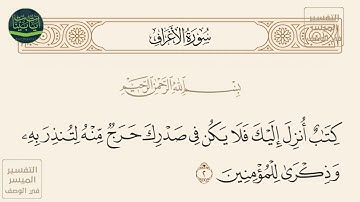 سُورَةُ الأَعْرَافِ
بِسْمِ اللَّهِ الرَّحْمَٰنِ الرَّحِيمِ
كِتَٰبٌ أُنزِلَ إِلَيْكَ فَلَا يَكُن فِي صَدْرِكَ حَرَجٌ مِّنْهُ لِتُنذِرَ بِهِۦ
وَذِكْرَىٰ لِلْمُؤْمِنِينَ ٢
التفسير
الميسر
في الوصف